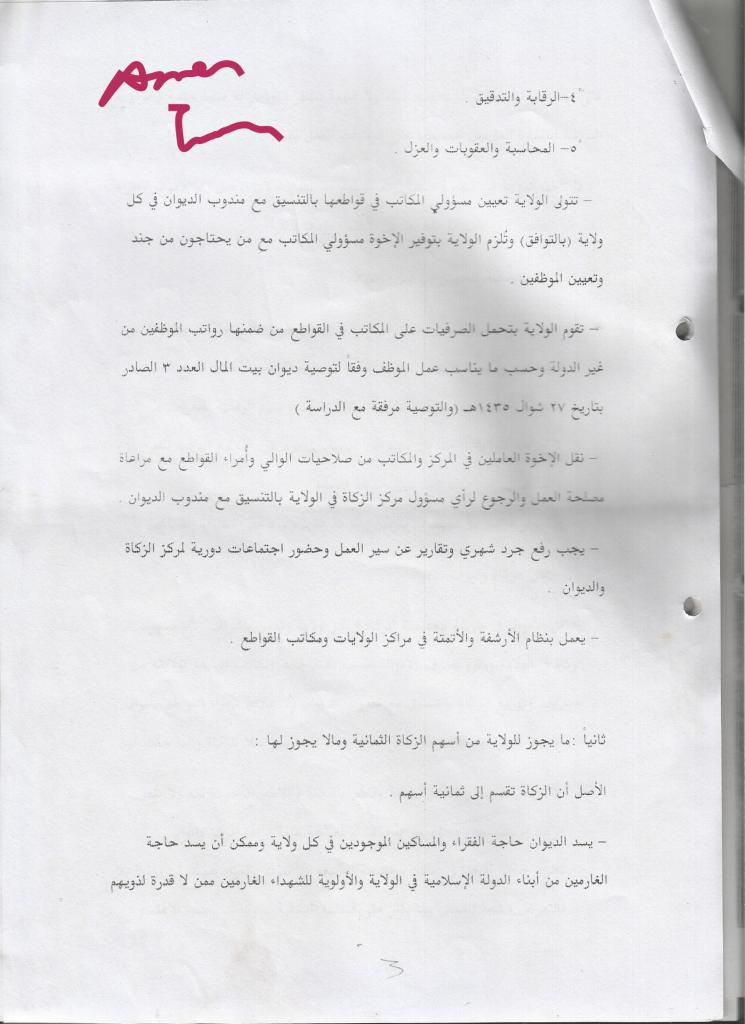 Amer
٤-الرقابة والتدقيق .
٥- المحاسبة والعقوبات والعزل .
- تتولى الولاية تعيين مسؤولي المكاتب في قواطعها بالتنسيق مع مندوب الديوان في كل
ولاية (بالتوافق) وتُلزم الولاية بتوفير الإخوة مسؤولي المكاتب مع من يحتاجون من جند
وتعيين الموظفين .
- تقوم الولاية بتحمل الصرفيات على المكاتب في القواطع من ضمنها رواتب الموظفين من
غير الدولة وحسب ما يناسب عمل الموظف وفقاً لتوصية ديوان بيت المال العدد ٣ الصادر
بتاريخ ٢٧ شوال ١٤٣٥هـ (والتوصية مرفقة مع الدراسة )
- نقل الإخوة العاملين في المركز والمكاتب من صلاحيات الوالي وأُمراء القواطع مع مراعاة
مصلحة العمل والرجوع لرأي مسؤول مركز الزكاة في الولاية بالتنسيق مع مندوب الديوان .
- يجب رفع جرد شهري وتقارير عن سير العمل وحضور اجتماعات دورية لمركز الزكاة
والديوان .
- يعمل بنظام الأرشفة والأتمتة في مراكز الولايات ومكاتب القواطع .
ثانياً :ما يجوز للولاية من أسهم الزكاة الثمانية ومالا يجوز لها :
الأصل أن الزكاة تقسم إلى ثمانية أسهم .
- يسد الديوان حاجة الفقراء والمساكين الموجودين في كل ولاية وممكن أن يسد حاجة
الغارمين من أبناء الدولة الإسلامية في الولاية والأولوية للشهداء الغارمين ممن لا قدرة لذويهم
3